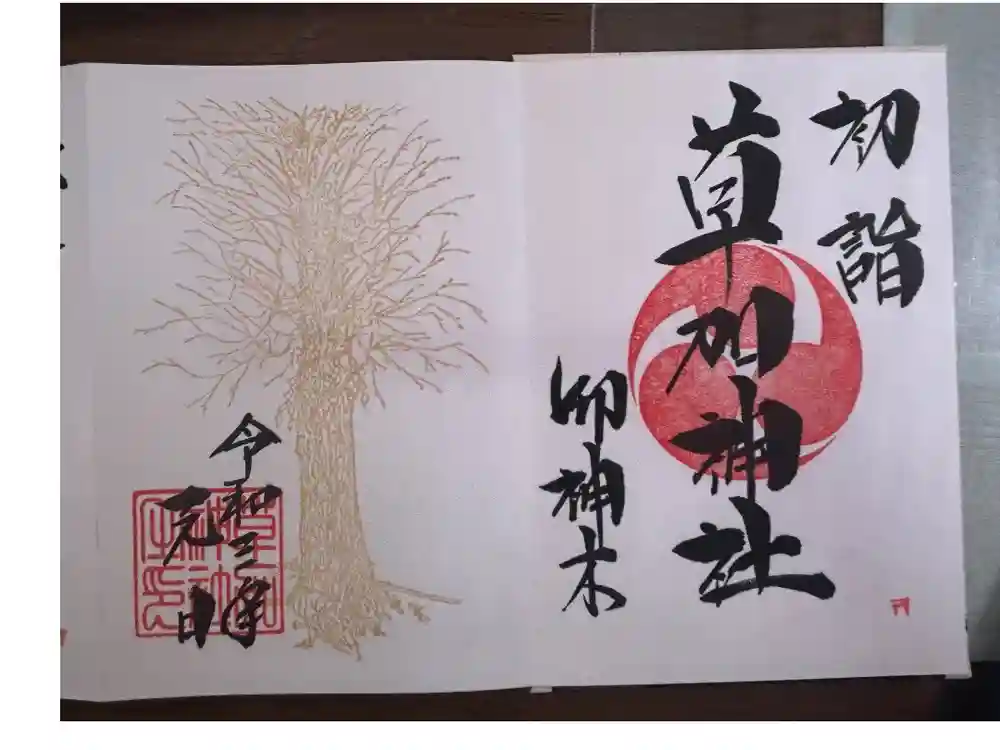 初詣
草加神社
御神木
令和三年
元日